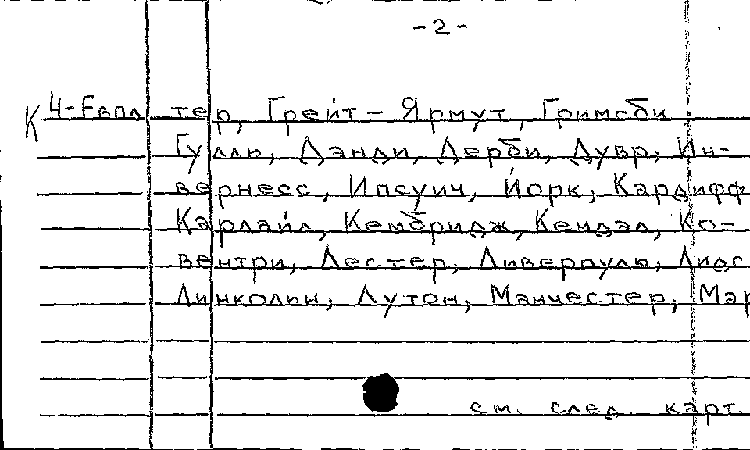 -2-
К 4-Fвпл тер, Грейт-Ярмут, Гримсби
Гулль, Дэнди, Дерби, Дувр, Ин-
вернесс, Ипсуич, Йорк, Кардифф
Карлайл, Кембридж, Кендэл, Ко-
вентри, Лестер, Ливерпуль, Лидс
Линкольн, Лутон, Манчестер, Мар
см. след. карт.